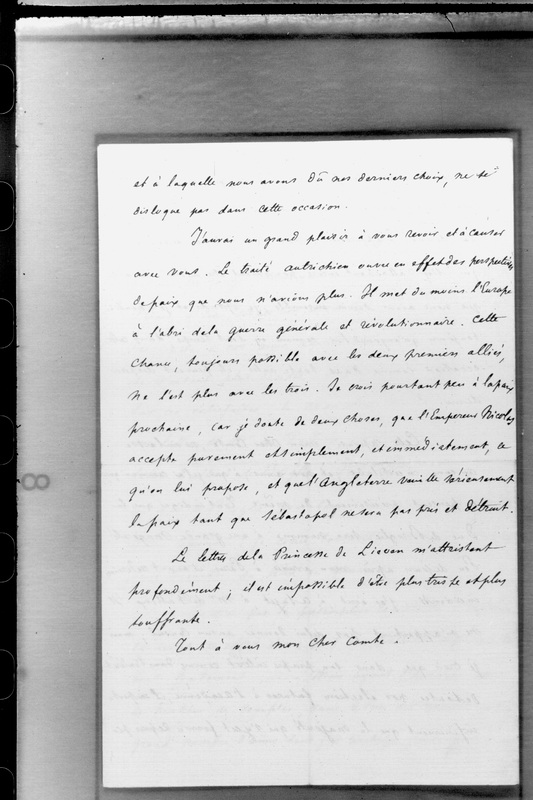 et à laquelle nous avons dû nos derniers choix, ne se
disloque pas dans cette occasion.
J'aurai un grand plaisir à vous revoir et à causer
avec vous. Le traité autrichien ouvre en effet des perspectives
de paix que nous n'avions plus. Il met du moins l'Europe
à l'abri de la guerre générale et révolutionnaire. Cette
chance, toujours possible avec les deux premiers alliés,
ne l'est plus avec les trois. Je crois pourtant peu à la paix
prochaine, car je doute de deux choses, que l'Empereur Nicolas
accepte purement et simplement, et immédiatement, ce
qu'on lui propose, et que l'Angleterre veuille sérieusement
la paix tant que Sébastopol ne sera pas pris et détruit.
Le lettres de la Princesse de Lieven m'attristent
profondément ; il est impossible d'être plus triste et plus
souffrante.
Tout à vous mon cher Comte.
8